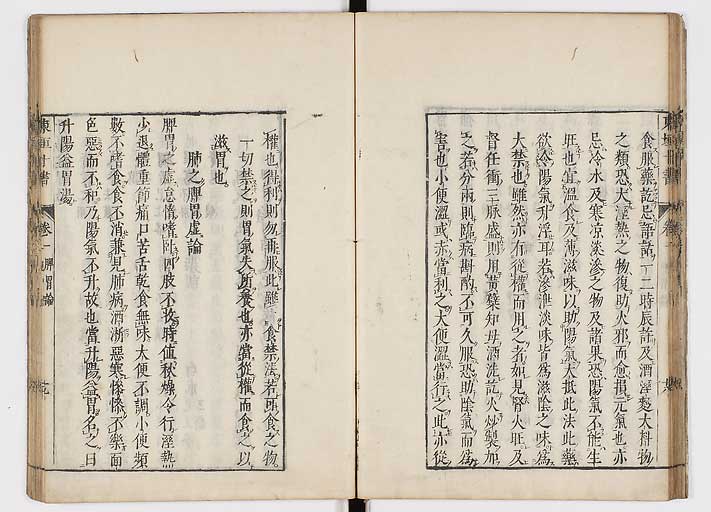 食服藥訖忌語話一二時辰許及酒溼麪大料物
之類恐大溼熱之物復助火邪而愈損元氣也亦
忌冷水及寒凉淡滲之物及諸果恐陽氣不能生
旺也宜溫食及薄滋味以助陽氣大抵此法此藥
欲令陽氣升浮耳若滲泄淡味皆爲滋陰之味爲
大禁也雖然亦有從權而用之者如見腎火旺及
督任衝三脉盛則用黃蘗知母酒洗訖火炒製加
之若分兩則臨病斟酌不可久服恐助陰氣而爲
害也小便澀或赤當利之大便澀當行之此亦從
權也得利則勿再服此雖立食禁法若可食之物
一切禁之則胃氣失所養也亦當從權而食之以
滋胃也
肺之脾胃虛論
脾胃之虛怠惰嗜卧四肢不收時值秋燥令行溼熱
少退體重節痛口苦舌乾食無味大便不調小便頻
數不嗜食食不消兼見肺病洒淅惡寒慘慘不樂面
色惡而不和乃陽氣不升故也當升陽益胃名之曰
升陽益胃湯
東垣十書
卷一
脾胃論